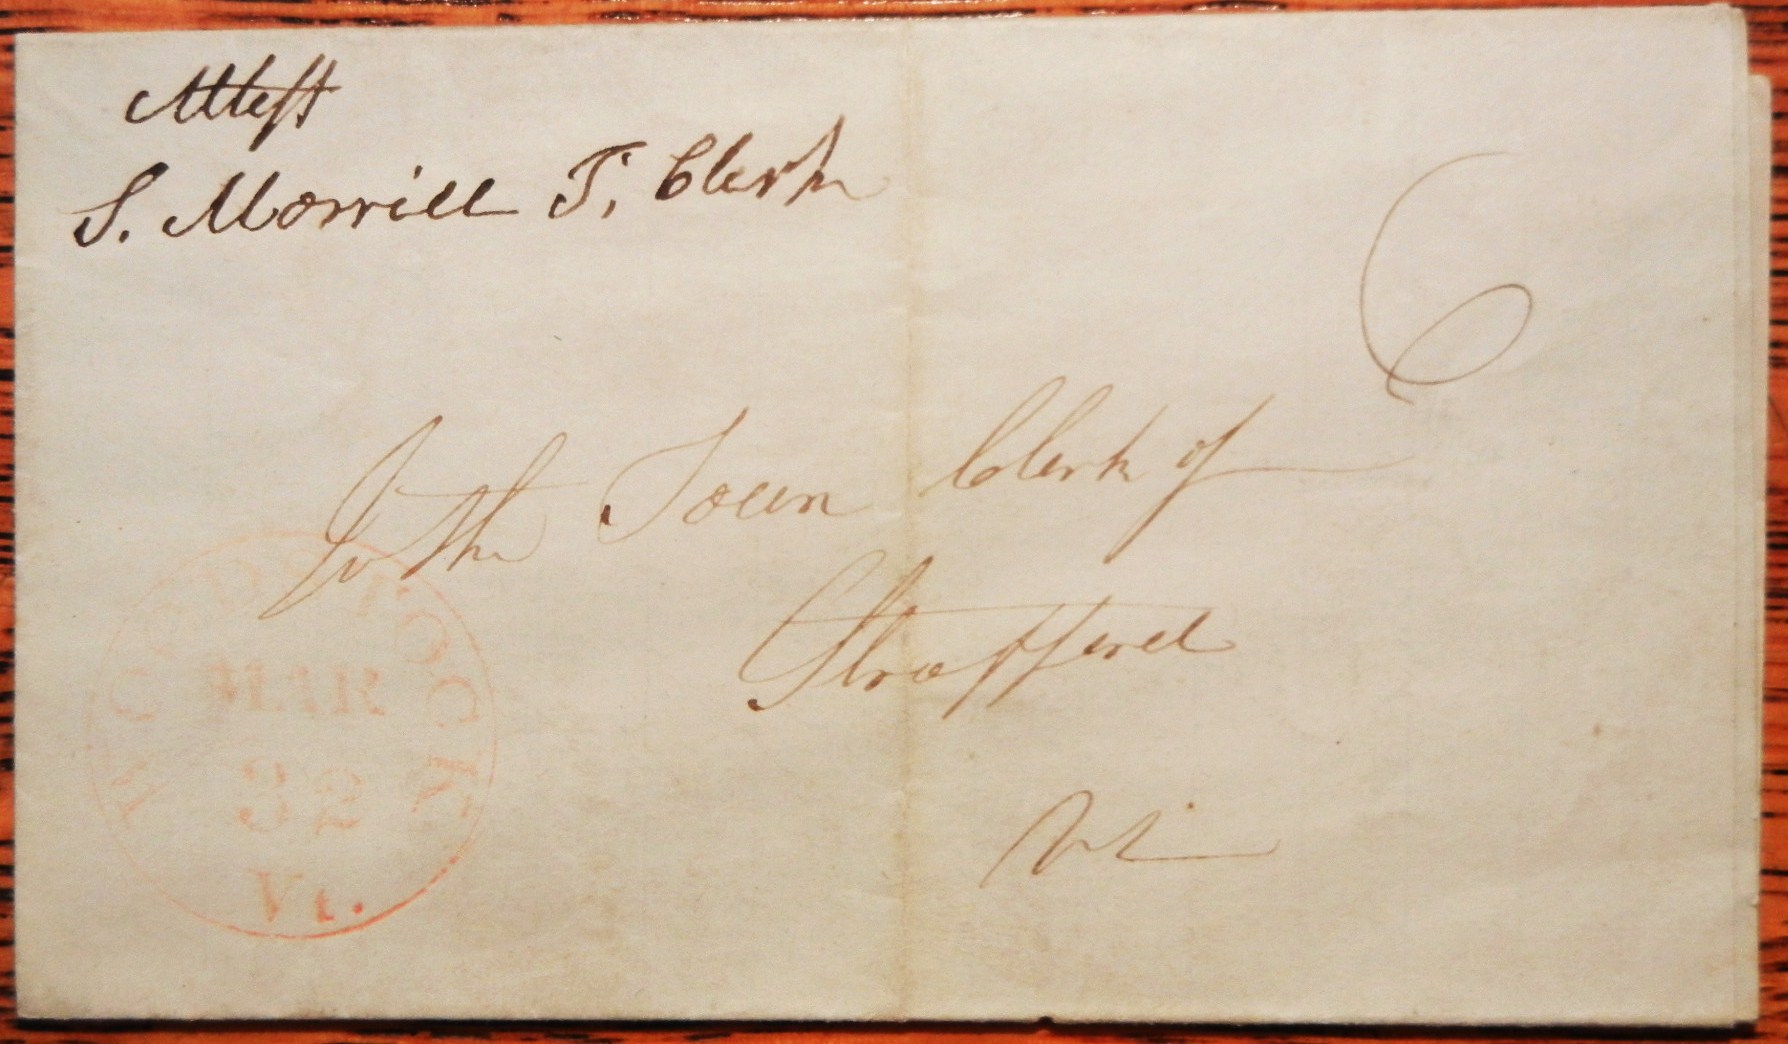 Attest
S. Morrill T. Clerk
6
To the Town Clerk of
Strafford
Vt
WOODSTOCK
MAR
32
Vt.